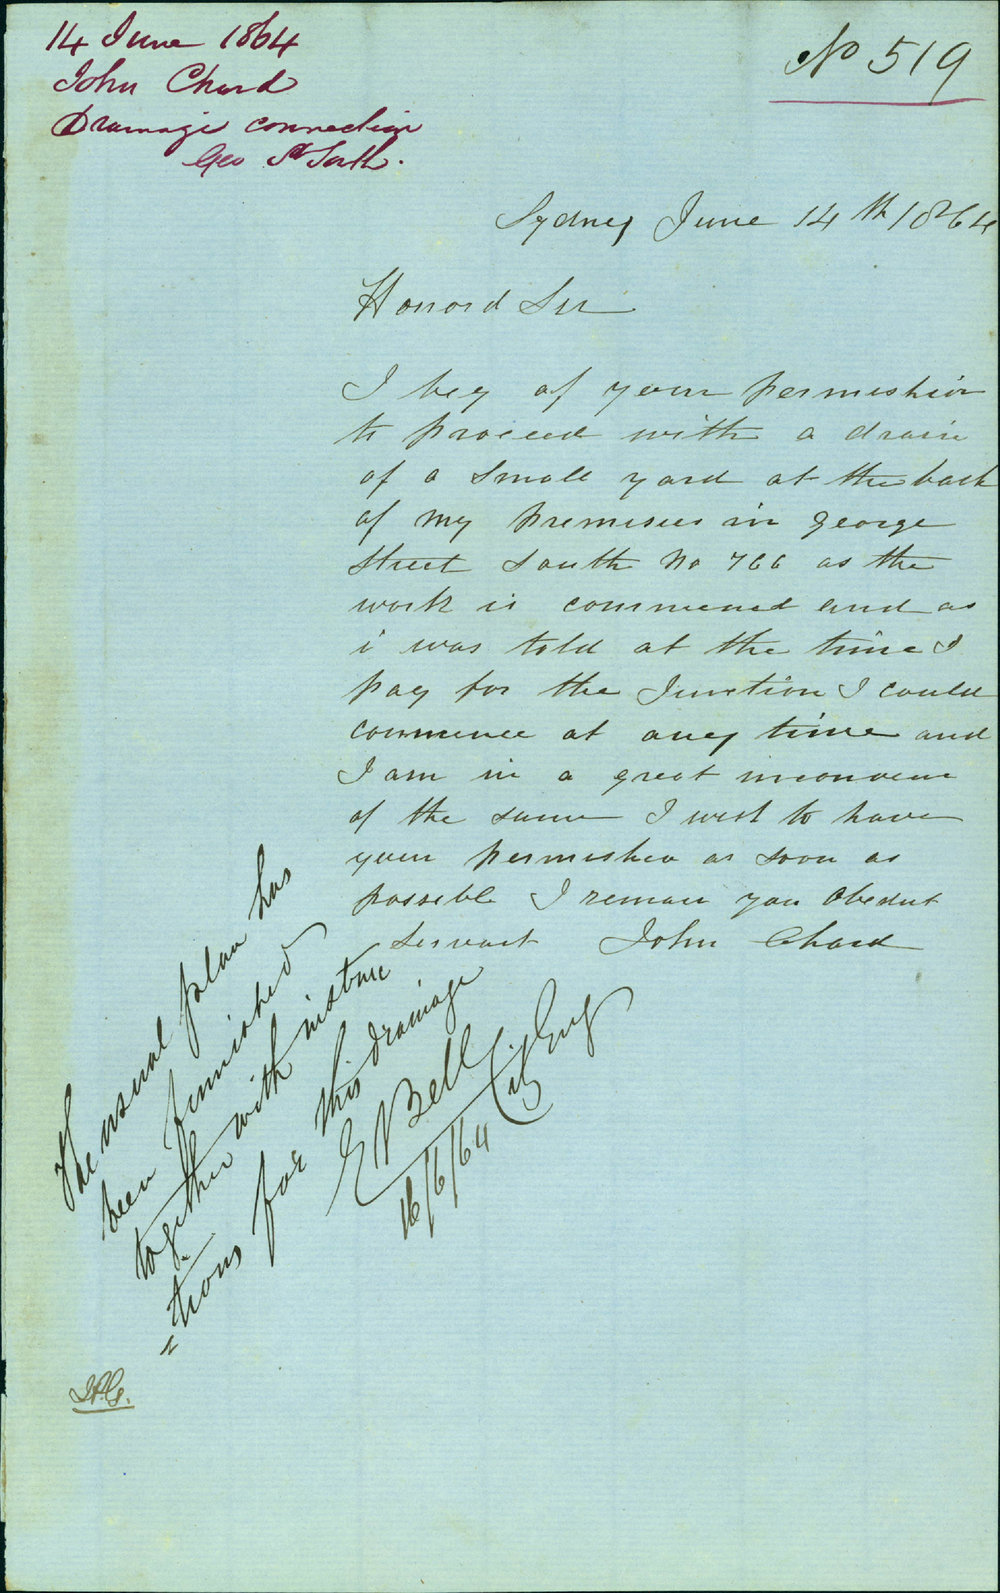 14 June 1864
John Chard
Drainage connection
Geo St South.
No 519
Sydney June 14th 1864
Honord Sir
I beg of your permishion
to proceed with a drain
of a small yard at the back
of my premises in george
street south No 766 as the
work is commenced and as
i was told at the time I
pay for the Junction I could
commence at any time and
I am in a great inconvene
of the same I wish to have
your permishen as soon as
possible I remain you obedent
servant John Chard
The usual plan has
been furnished
together with instruc
=tions for this drainage
E Bell
City Eng
16/6/64